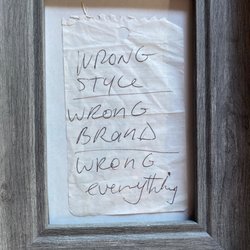 WRONG
STYLE
WRONG
BRAND
WRONG
everything